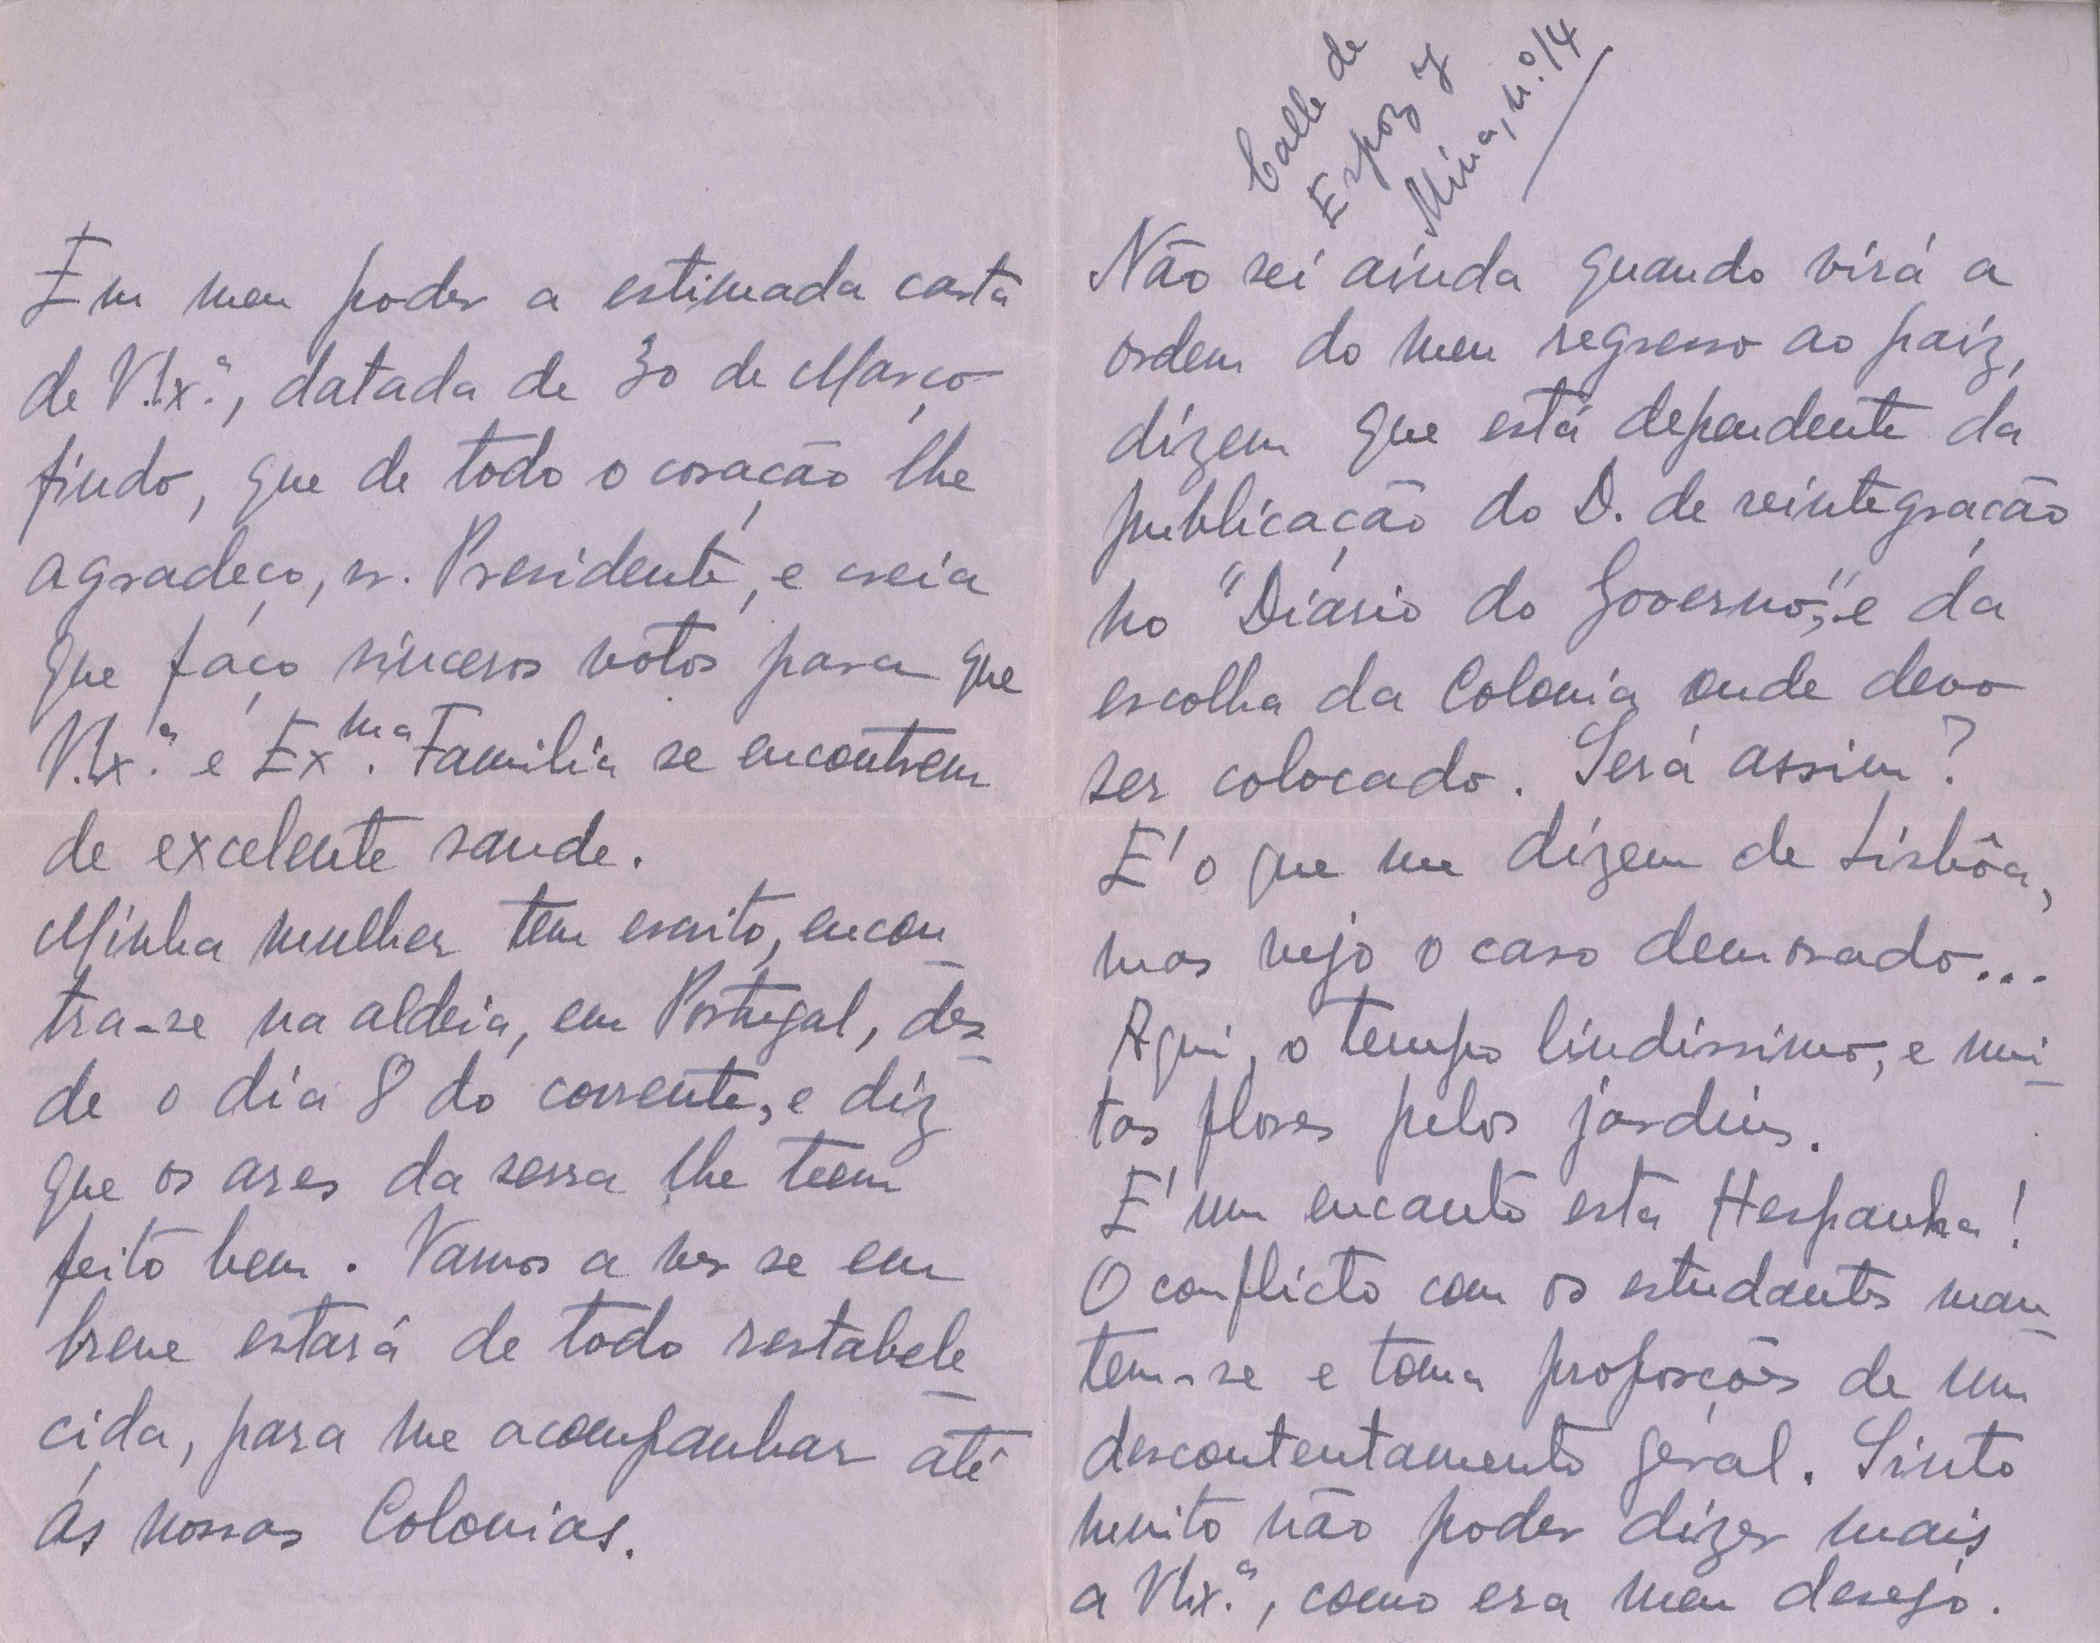 Em meu poder a estimada carta
de V.Ex.ª, datada de 30 de Março
findo, que de todo o coração lhe
agradeço, sr. Presidente, e creia
que faço sinceros votos para que
V.Ex.ª e Ex.ma Familia se encontrem
de excelente saude.
Minha mulher tem escrito, encon-
tra-se na aldeia, em Portugal, des-
de o dia 8 do corrente, e diz
que os ares da serra lhe teem
feito bem. Vamos a ver se em
breve estará de todo restabele-
cida, para me acompanhar até
ás nossas Colonias.
Calle de
Espoz y
Mina, n.º 14
Não sei ainda quando virá a
ordem do meu regresso ao paiz,
dizem que está dependente da
publicação do D. de reintegração
no "Diário do Governo", e da
escolha da Colonia onde devo
ser colocado. Será assim?
E' o que me dizem de Lisbôa,
mas vejo o caso demorado...
Aqui, o tempo lindissimo, e mui-
tas flores pelos jardins.
E' um encanto esta Hespanha!
O conflicto com os estudantes man-
tem-se e toma proporções de um
descontentamento géral. Sinto
muito não poder dizer mais
a V.Ex.ª, como era meu desejo.